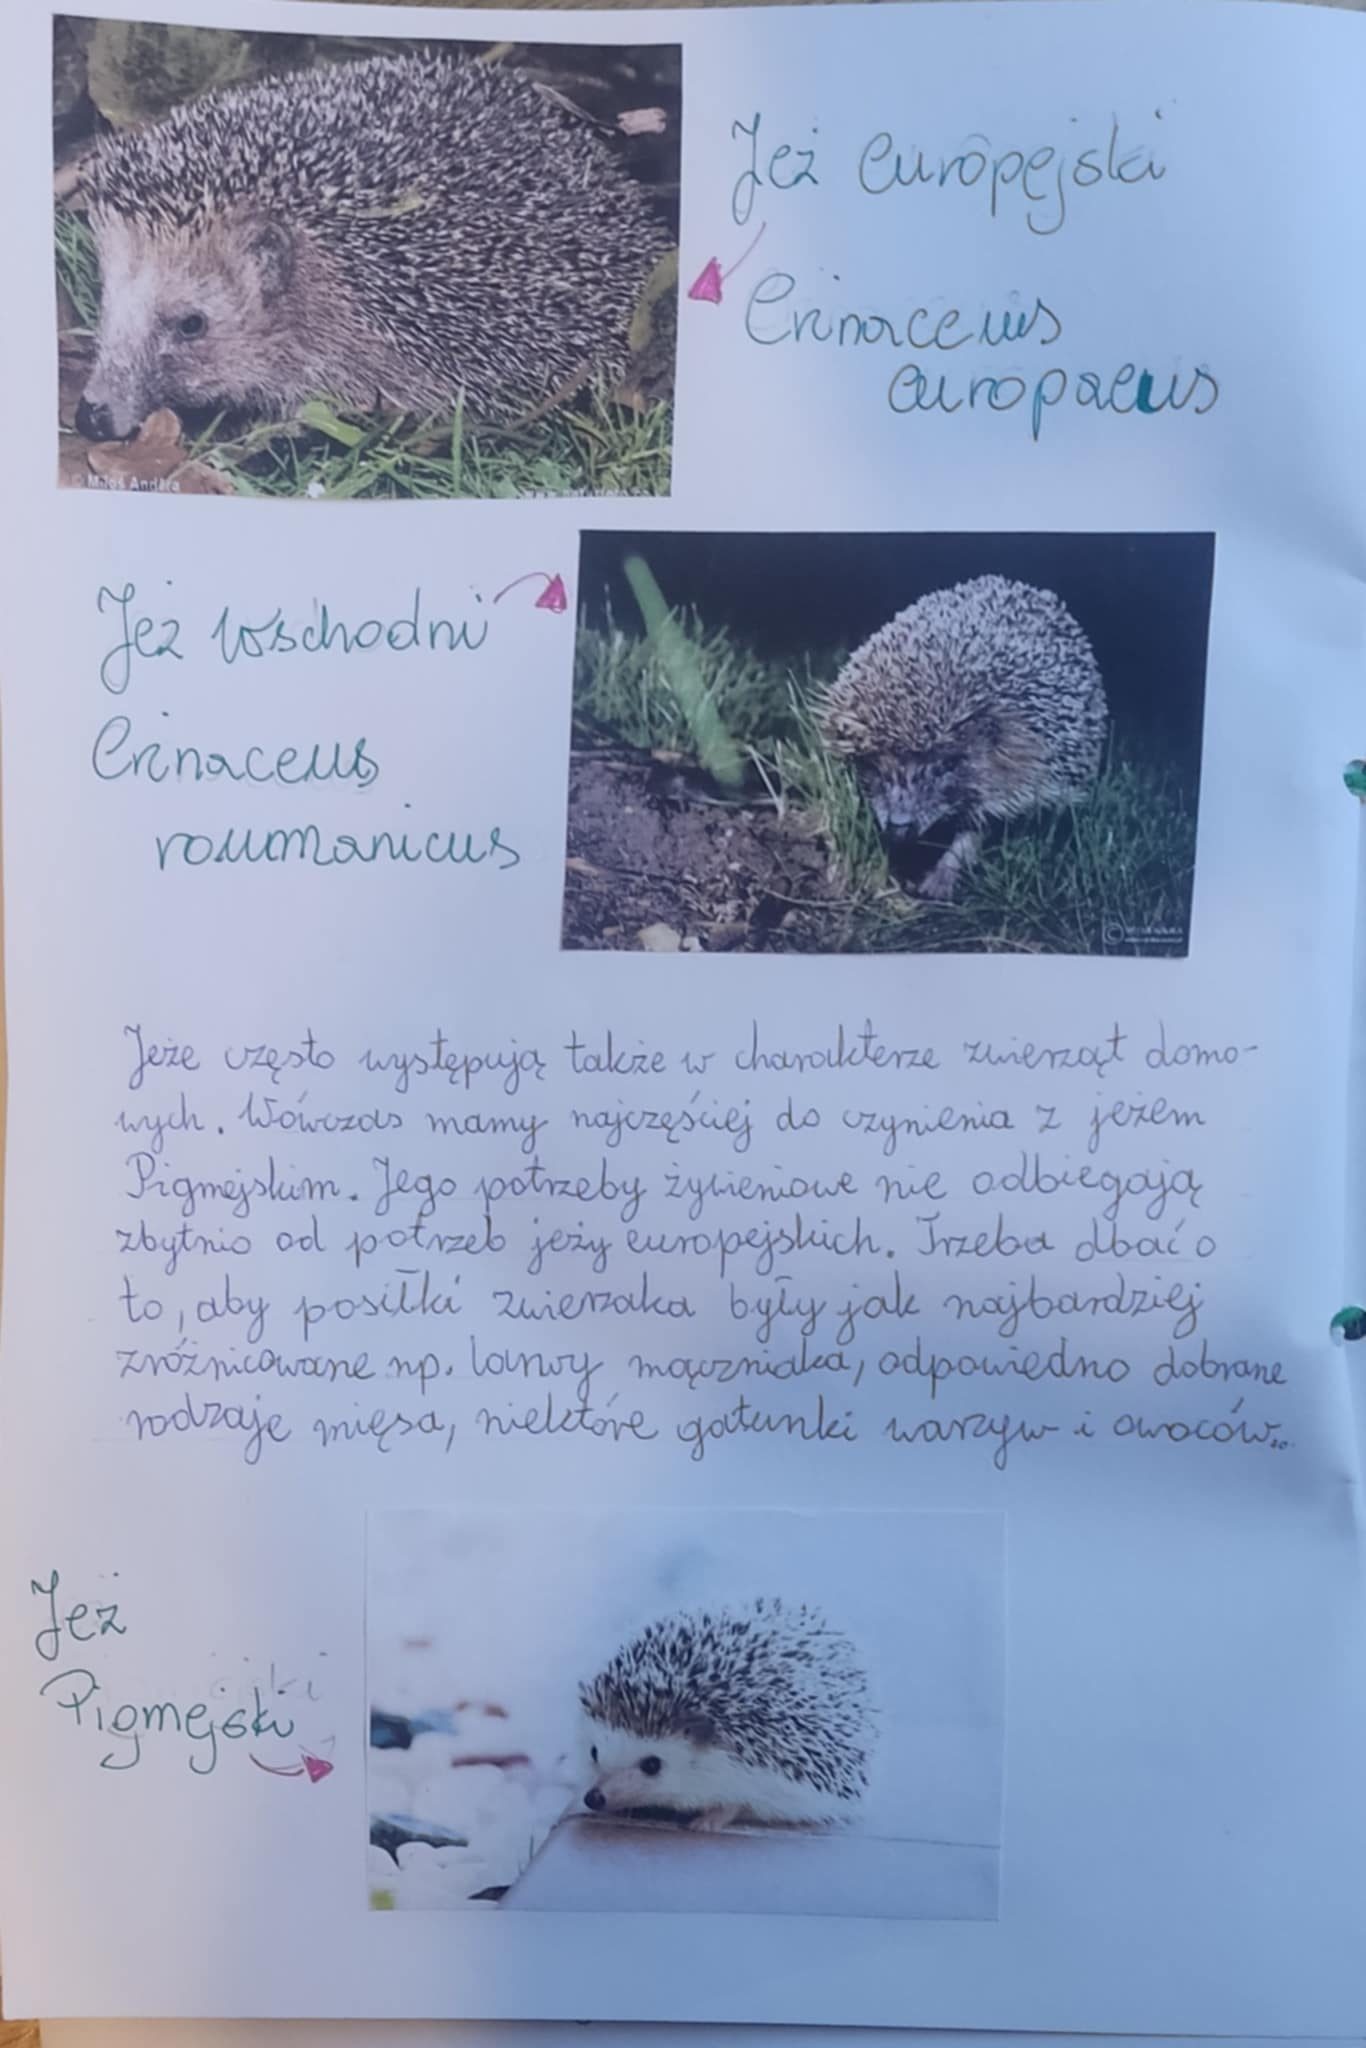 Jeż europejski
Erinaceus
europaeus
© Miloš Anděra
Jeż wschodni
Erinaceus
roumanicus
Jeże często występują także w charakterze zwierząt domo-
wych. Wówczas mamy najczęściej do czynienia z jeżem
Pigmejskim. Jego potrzeby żywieniowe nie odbiegają
zbytnio od potrzeb jeży europejskich. Trzeba dbać o
to, aby posiłki zwierzaka były jak najbardziej
zróżnicowane np. larwy mącznika, odpowiedno dobrane
rodzaje mięsa, niektóre gatunki warzyw i owoców...
Jeż
Pigmejski